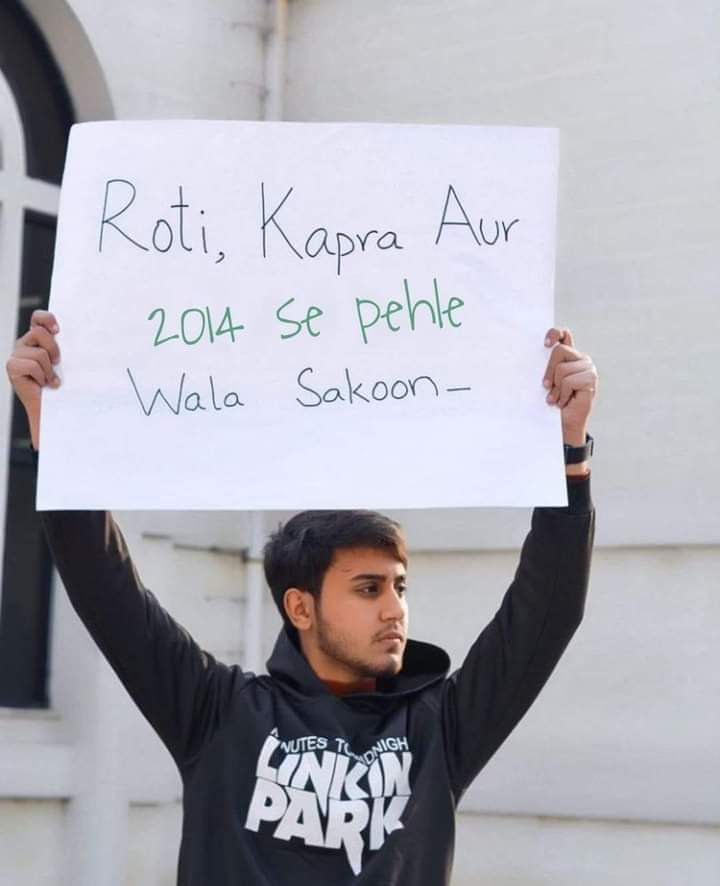 Roti, Kapra Aur
2014 se pehle
Wala Sakoon-
NUTES TO DNIGH
LINKIN
PARK